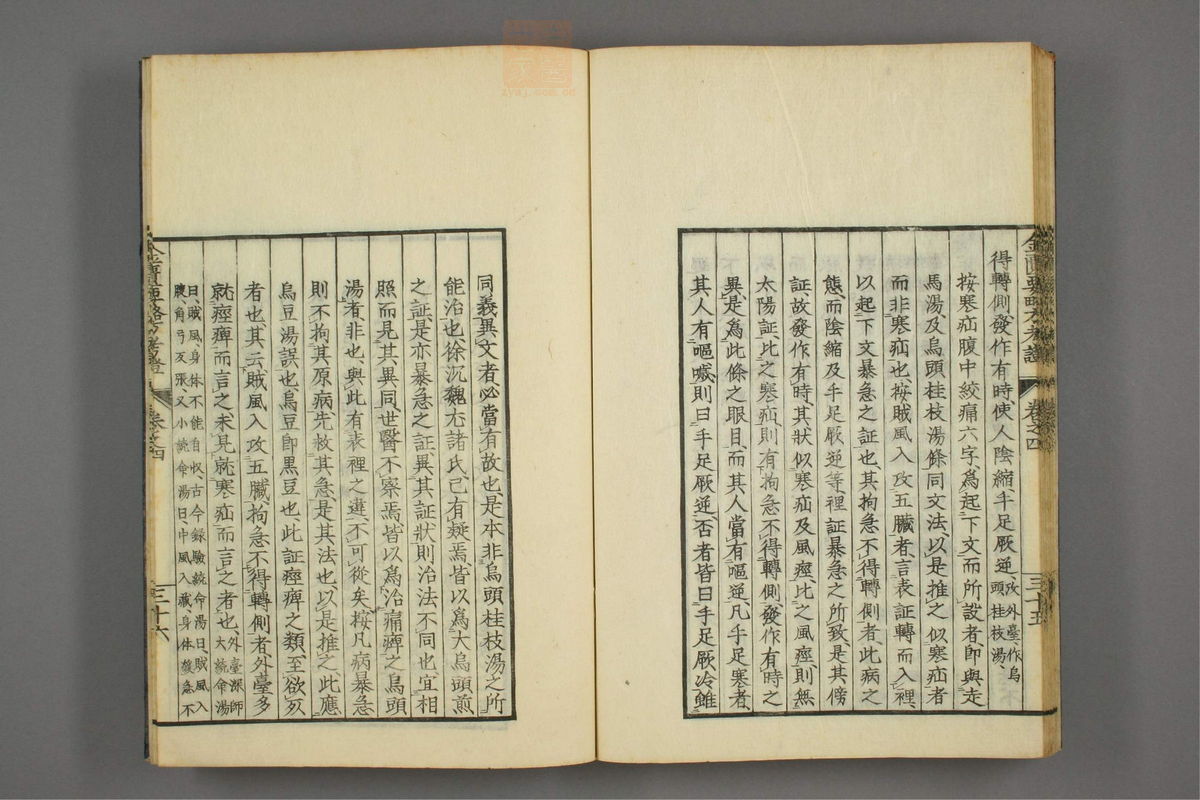 得轉側、發作有時、使人陰縮、手足厥逆、攷外臺、作烏頭桂枝湯、
按寒疝腹中絞痛六字、爲起下文而所設者、即與走
馬湯及烏頭桂枝湯條同文法、以是推之、似寒疝者
而非寒疝也、按賊風入攻五臟者、言表証轉而入裡、
以起下文暴急之証也、其拘急不得轉側者、此病之
態、而陰縮及手足厥逆等、裡証暴急之所致、是其傍
証、故發作有時、其狀似寒疝及風痙、比之風痙、則無
太陽証、比之寒疝、則有拘急不得轉側、發作有時之
異、是爲此條之眼目、而其人當有嘔逆、凡手足寒者、
其人有嘔噦、則曰手足厥逆、否者皆曰手足厥冷、雖
金匱要略方考證
卷之四
三十五
同義異文者、必當有故也、是本非烏頭桂枝湯之所
能治也、徐沉魏尤諸氏、已有疑焉、皆以爲大烏頭煎
之証、是亦暴急之証、異其証狀、則治法不同也、宜相
照而見其異同、世醫不察焉、皆以爲治痛痺之烏頭
湯者、非也、與此有表裡之違、不可從矣、按凡病暴急
則不拘其原病、先救其急、是其法也、以是推之、此應
烏豆湯誤也、烏豆即黑豆也、此証痙痺之類、至欲死
者也、其云賊風入攻五臟、拘急不得轉側者、外臺多
就痙痺而言之、未見就寒疝而言之者也、外臺深師大續命湯
曰、賊風、身体不能自收、古今錄驗續命湯曰、賊風入
腹、角弓反張、又小續命湯曰、中風入藏、身体緩急不
金匱要略方考證
卷之四
三十六